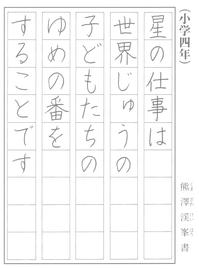 (小学四年)
星の仕事は
世界じゅうの
子どもたちの
ゆめの番を
することです
熊澤渓峯書